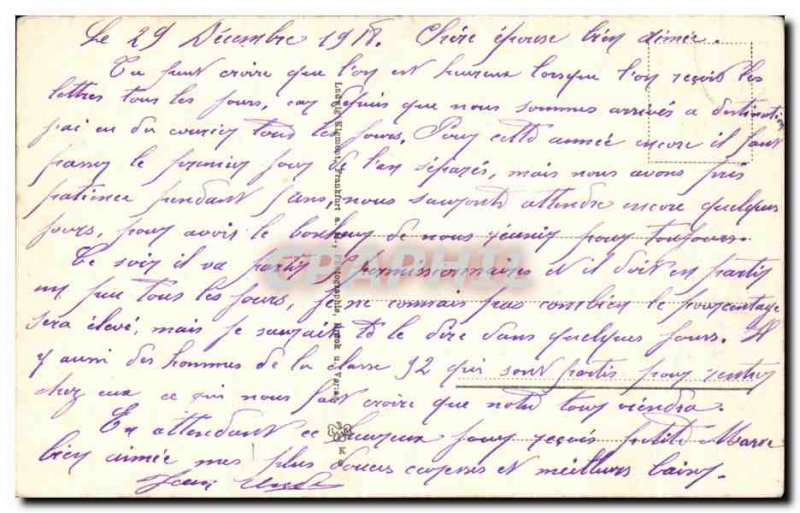 Le 29 Décembre 1918. Chère épouse bien aimée.
Tu peut croire que l'on est heureux lorsque l'on reçois les
lettres tous les jours, car depuis que nous sommes arrivés a destination
j'ai eu du courrier tous les jours. Pour cette année encore il faut
passer le premier jour de l'an séparés, mais nous avons pris
patience pendant ans, nous saurons attendre encore quelques
jours, pour avoir le bonheur de nous réunir pour toujours.
Ce soir il va partir permissionnaires et il doit en partir
un peu tous les jours, je ne connais pas combien le pourcentage
sera élevé, mais je saurais te le dire dans quelques jours. Il
y aussi des hommes de la classe 92 qui sont partis pour rentrer
chez eux ce qui nous fait croire que notre tour viendra.
En attendant ce heureux jour reçois petite
bien aimée mes plus douces caresses et meilleurs baisers.
Ludwig Klement, Frankfurt a. M., Photographie,
CPAPHIL